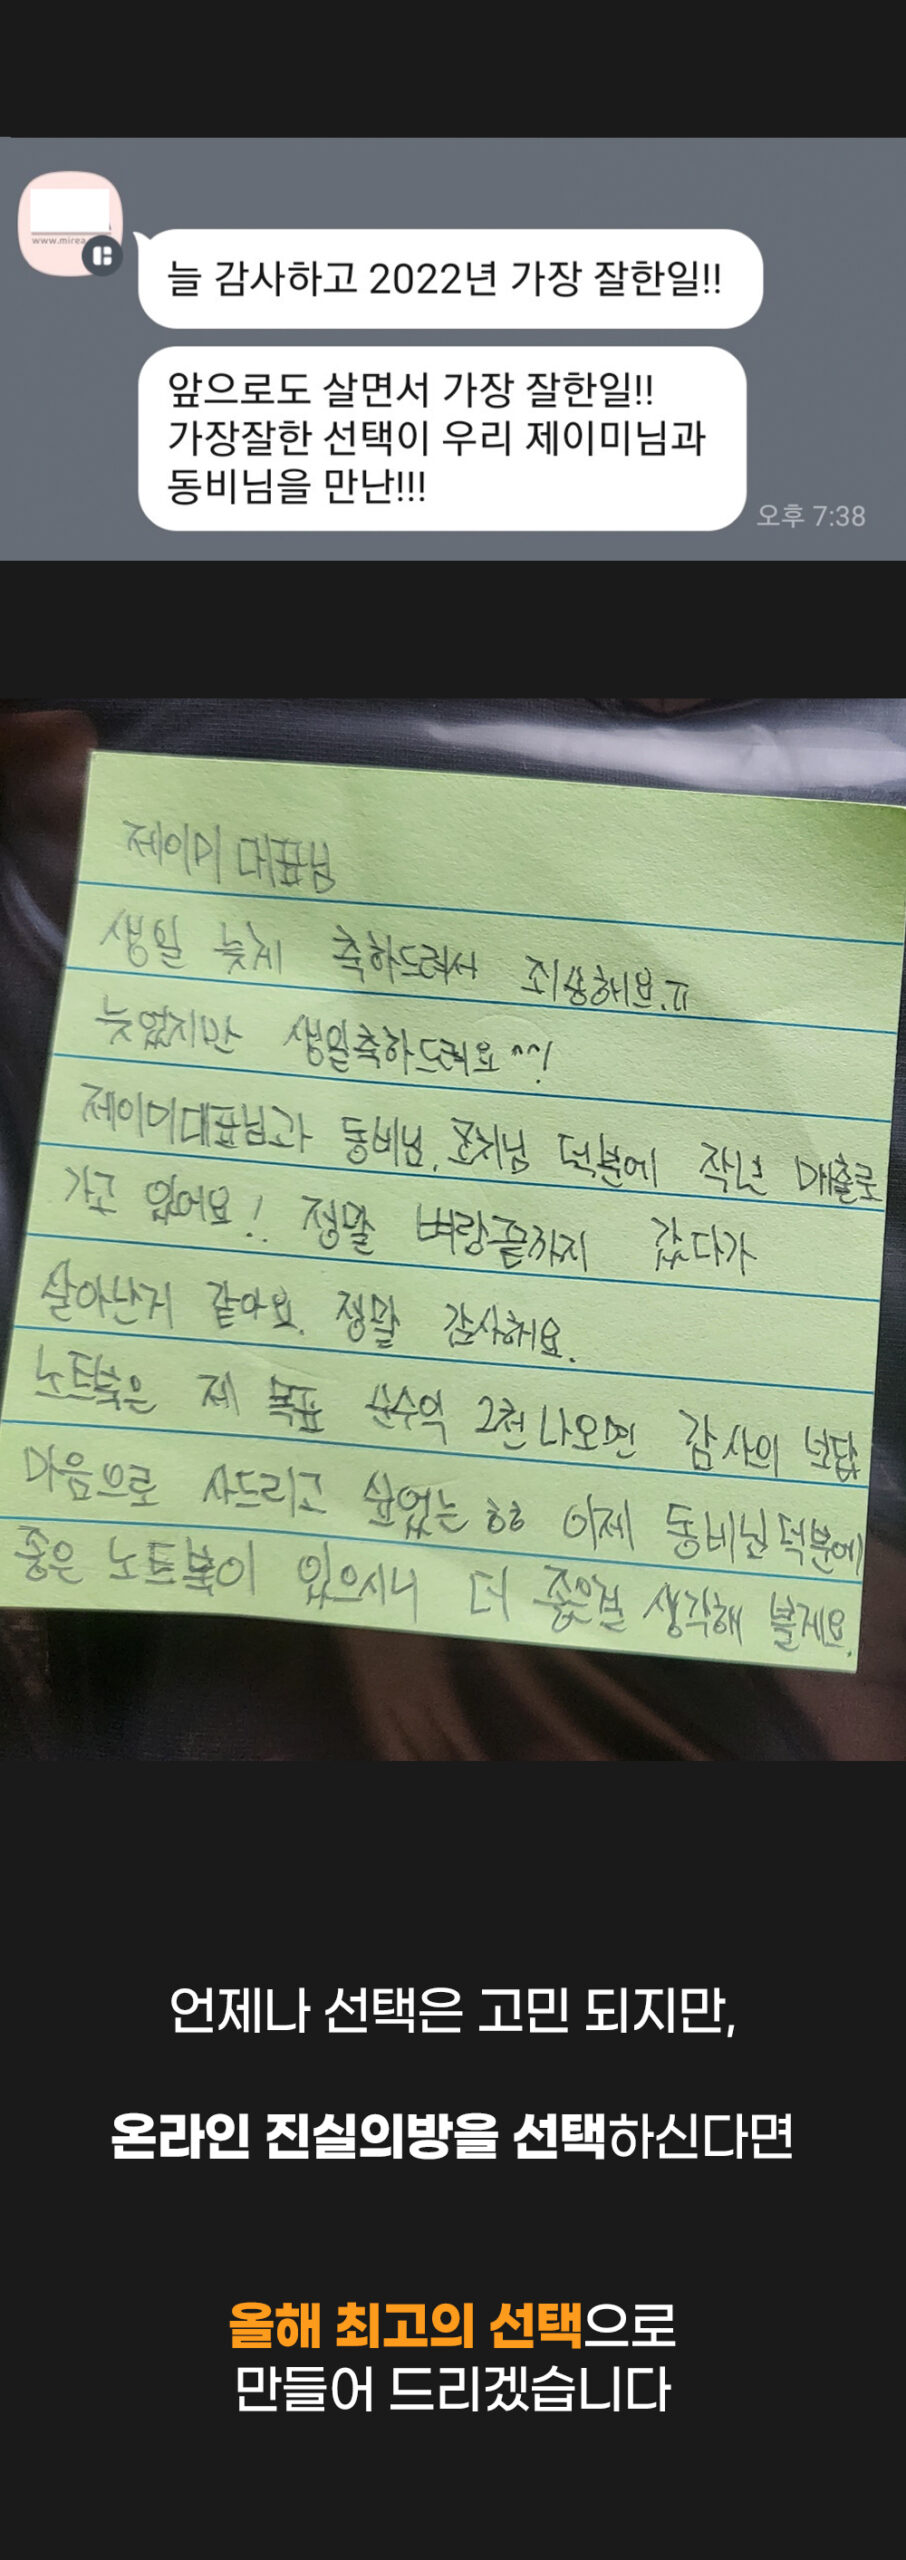 www.mirea
늘 감사하고 2022년 가장 잘한일!!
앞으로도 살면서 가장 잘한일!!
가장잘한 선택이 우리 제이미님과
동비님을 만난!!!
오후 7:38
제이미 대표님
생일 늦게 축하드려서 죄송해요.ㅠ
늦었지만 생일축하드려요^^!
제이미대표님과 동비님, 덕분에 작년 매출로
가고 있어요! 정말 벼랑끝까지 갔다가
살아난거 같아요. 정말 감사해요.
노트북은 제 목표 순수익 2천 나오면 감사의 보답
마음으로 사드리고 싶었는 ㅎㅎ 이제 동비님덕분에
좋은 노트북이 있으시니 더 좋은걸 생각해 볼게요.
언제나 선택은 고민 되지만,
온라인 진실의방을 선택하신다면
올해 최고의 선택으로
만들어 드리겠습니다